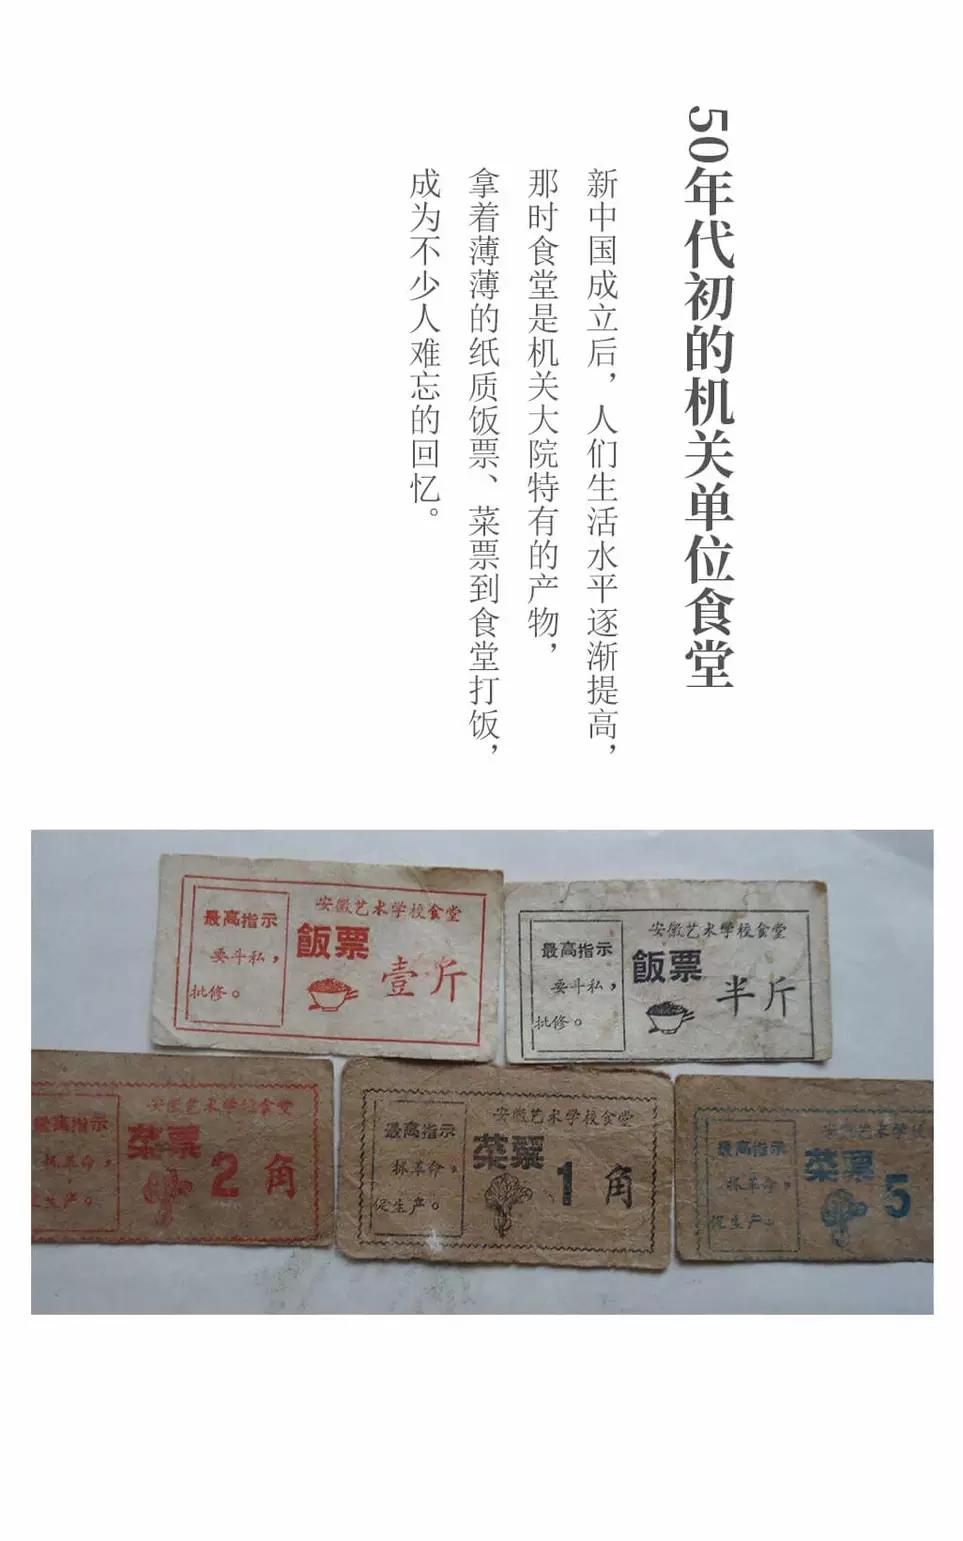 50年代初的机关单位食堂
新中国成立后，人们生活水平逐渐提高，
那时食堂是机关大院特有的产物，
拿着薄薄的纸质饭票、菜票到食堂打饭，
成为不少人难忘的回忆。
最高指示
要斗私，
批修。
安徽艺术学校食堂
飯票
壹斤
最高指示
要斗私，
批修。
安徽艺术学校食堂
飯票
半斤
最高指示
抓革命，
促生产。
安徽艺术学校食堂
菜票
2角
最高指示
抓革命，
促生产。
安徽艺术学校食堂
菜票
1角
最高指示
抓革命，
促生产。
安徽艺术学校
菜票
5